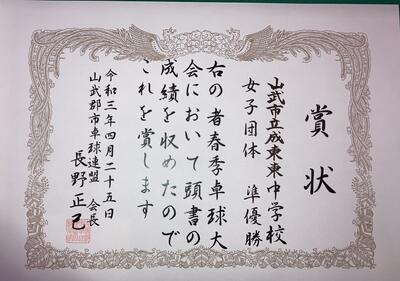 賞状
山武市立成東東中学校
女子団体 準優勝
右の者春季卓球大
会において頭書の
成績を収めたので
これを賞します
令和三年四月二十五日
山武郡市卓球連盟 会長
長野正己